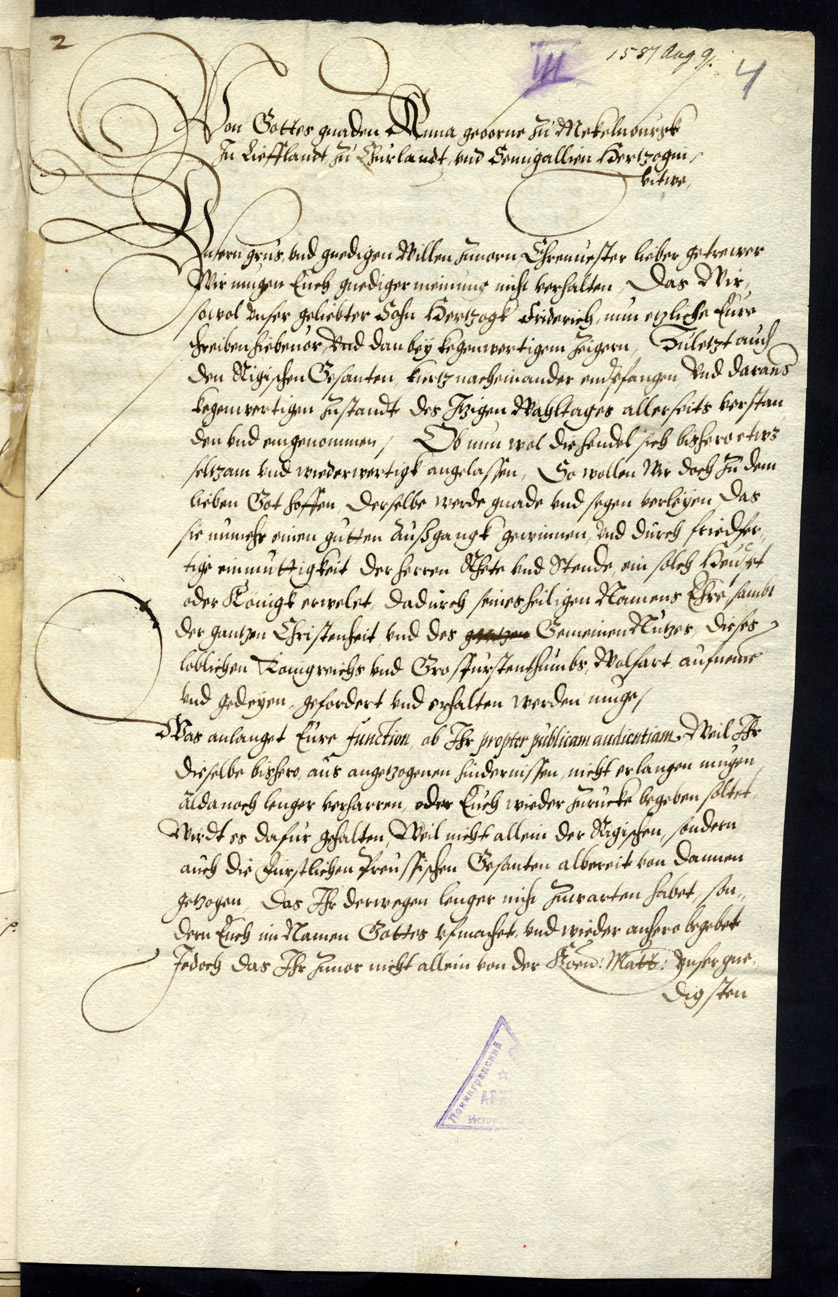 2
III
1587 Aug 9.
4
Von Gottes gnaden Anna geborne zu Mekelnburgk
In Liefflandt, zu Churlandt, vnd Semigallien Hertzogin,
witwe,
Vnsern grus, vnd gnedigen Willen zuuorn Ehrnuester lieber getrewer
Wir mugen Euch gnediger meinung nicht verhalten, Das Wir,
sowol Vnser geliebter Sohn Hertzogk Friderich, nun etzliche Eure
schreiben hiebeuor, Vnd dan bey kegenwertigem Zeigern, Zuletzt auch
den Rigischen Gesanten, kurtz nacheinander empfangen Vnd daraus
kegenwertigen zustandt des Itzigen Wahltages allerseits verstan
den vnd eingenommen, Ob nun wol die hendel sich bishero etwz
seltzam vnd wiederwertigk angelassen, So wollen Wir doch zu dem
lieben Got hoffen, Derselbe werde gnade vnd segen verleyen das
sie nunmehr einen gutten Außgangk gewinnen, Vnd durch friedfer,,
tige einmuttigkeit der herren Rhete vnd Stende, ein solch Heubt
oder Konigk erwelet, dadurch seines heiligen Namens Ehre, sambt
der gantzen Christenheit vnd des Gemeinen Nutzes, dieses
loblichen Konigreichs vnd Grosfurstenthumbs, Wolfart, aufneme
vnd gedeyen, gefordert vnd erhalten werden muge,
Was anlanget Eure function, ob Ihr propter publicam audientiam, Weil Ihr
dieselbe bishero, aus angetzogenen hindernissen, nicht erlangen mugen,
Alda noch lenger verharren, oder Euch wieder zurucke begeben soltet,
Wirdt es dafur gehalten, Weil nicht allein der Rigischen, sondern
auch die Furstlichen Preussischen Gesanten albereit von dannen
getzogen, Das Ihr derwegen lenger nicht zuwarten habet, son,,
dern Euch im Namen Gottes vfmachet, vnd wieder anhero begebet
Jedoch das Ihr zuuor nicht allein von der Koen: Matt: Vnser gne,
digsten
Ленинградский
АРХ
Истор